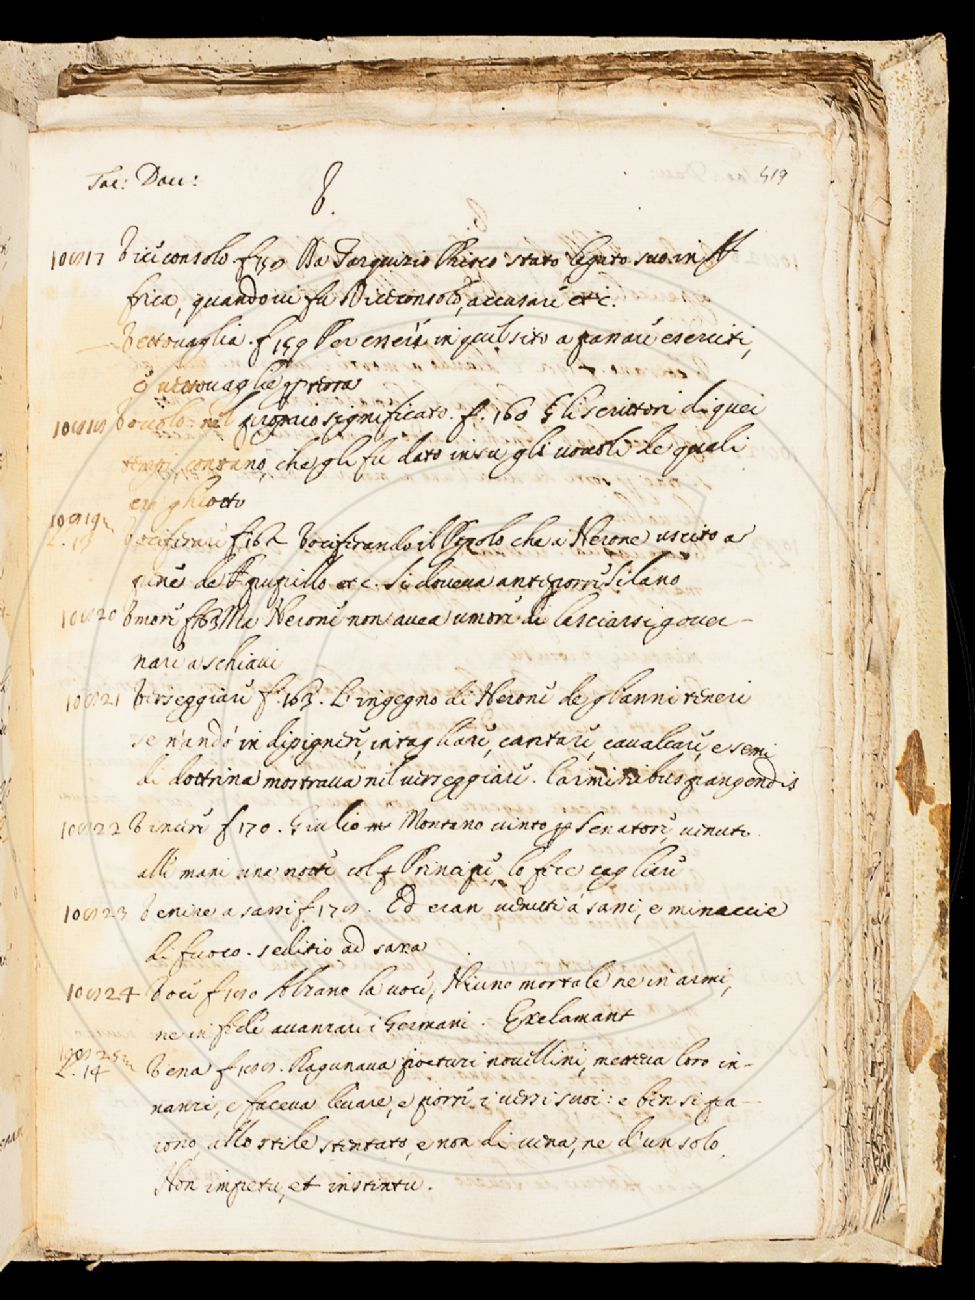 Tac: Dau:
V.
419
10817 Viciconsolo f 158 Da Tarquizio Prisco stato legato suo in Af
frica, quando vi fu Viceconsolo, accusare etc.
Vettovaglia. f 159 Per essere in quel sito a passare eserciti,
o vettovaglie per terra
10818 Vovolo: nel proprio significato. f. 160 Gli scrittori di quei
tempi contano, che gli fu dato in su gli uovoli de quali
era ghiotto
10819 Vociferare f 162 Vociferando il Popolo che a Nerone uscito a
pena de pupillo etc. si doveva anteporre Silano
10820 Umore f 163 Ma Nerone non avea umore di lasciarsi gover-
nare a schiavi
10821 Verseggiare f. 163. L'ingegno di Nerone de gl'anni teneri
se n'andò in dipignere, intagliare, cantare, cavalcare, e semi
di dottrina mostrava nel verseggiare. Carminibus pangendis
10822 Vincere f 170. Giulio Montano vinto per Senatore, venuto
alle mani una notte col Principe, lo fece cagliare
10823 Venire a sassi f 178. Ed eran venuti a' sassi, e minaccie
di fuoco. seditio ad saxa
10824 Voce f 180 Alzano la voce, Niuno mortale ne in armi,
ne in fede avanzare i Germani. Exclamant
10825 Vena f 188. Ragunava poeturi novellini, metteva loro in-
L. 14
nanzi, e faceva levare, e porre i versi suoi: e ben si pa-
iono, allo stile stentato, e non di vena, ne d'un solo.
Non impetu, et instinctu.